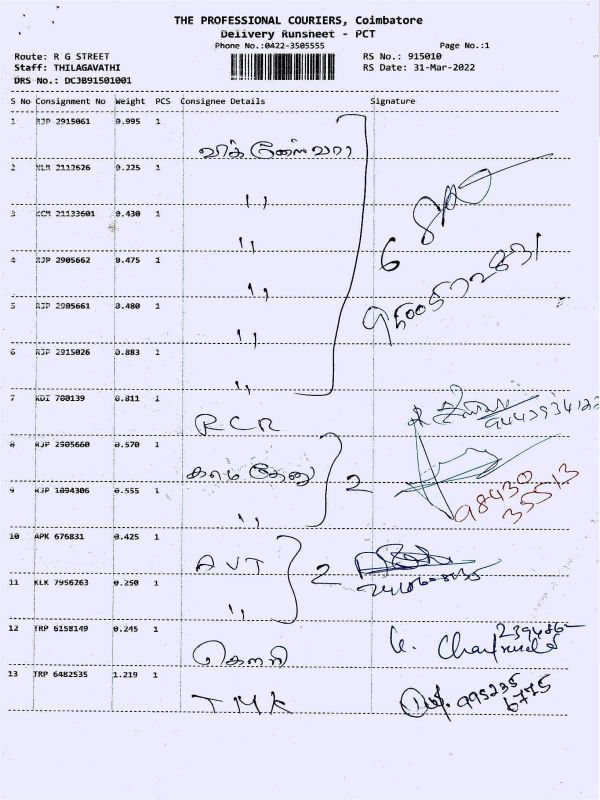 THE PROFESSIONAL COURIERS, Coimbatore
Delivery Runsheet - PCT
Phone No.:0422-3505555 Page No.:1
Route: R G STREET RS No.: 915010
Staff: THILAGAVATHI RS Date: 31-Mar-2022
DRS No.: DCJB91501001
S No Consignment No Weight PCS Consignee Details Signature
1 RJP 2915061 0.995 1
2 NLR 2113626 0.225 1
,,
3 KCM 21133601 0.430 1
,,
6
4 RJP 2905662 0.475 1
,,
5 RJP 2905661 0.480 1
,,
6 RJP 2915026 0.883 1
,,
7 KDI 700139 0.811 1
RCR
8 RJP 2905660 0.570 1
காமதேனு 2
9 RJP 1094306 0.555 1
,, 98430
35513
10 APK 676831 0.425 1
AVT 2
11 KLK 7956263 0.250 1
,,
12 TRP 6158149 0.245 1
கௌரி
13 TRP 6482535 1.219 1
TMK 995235
6775